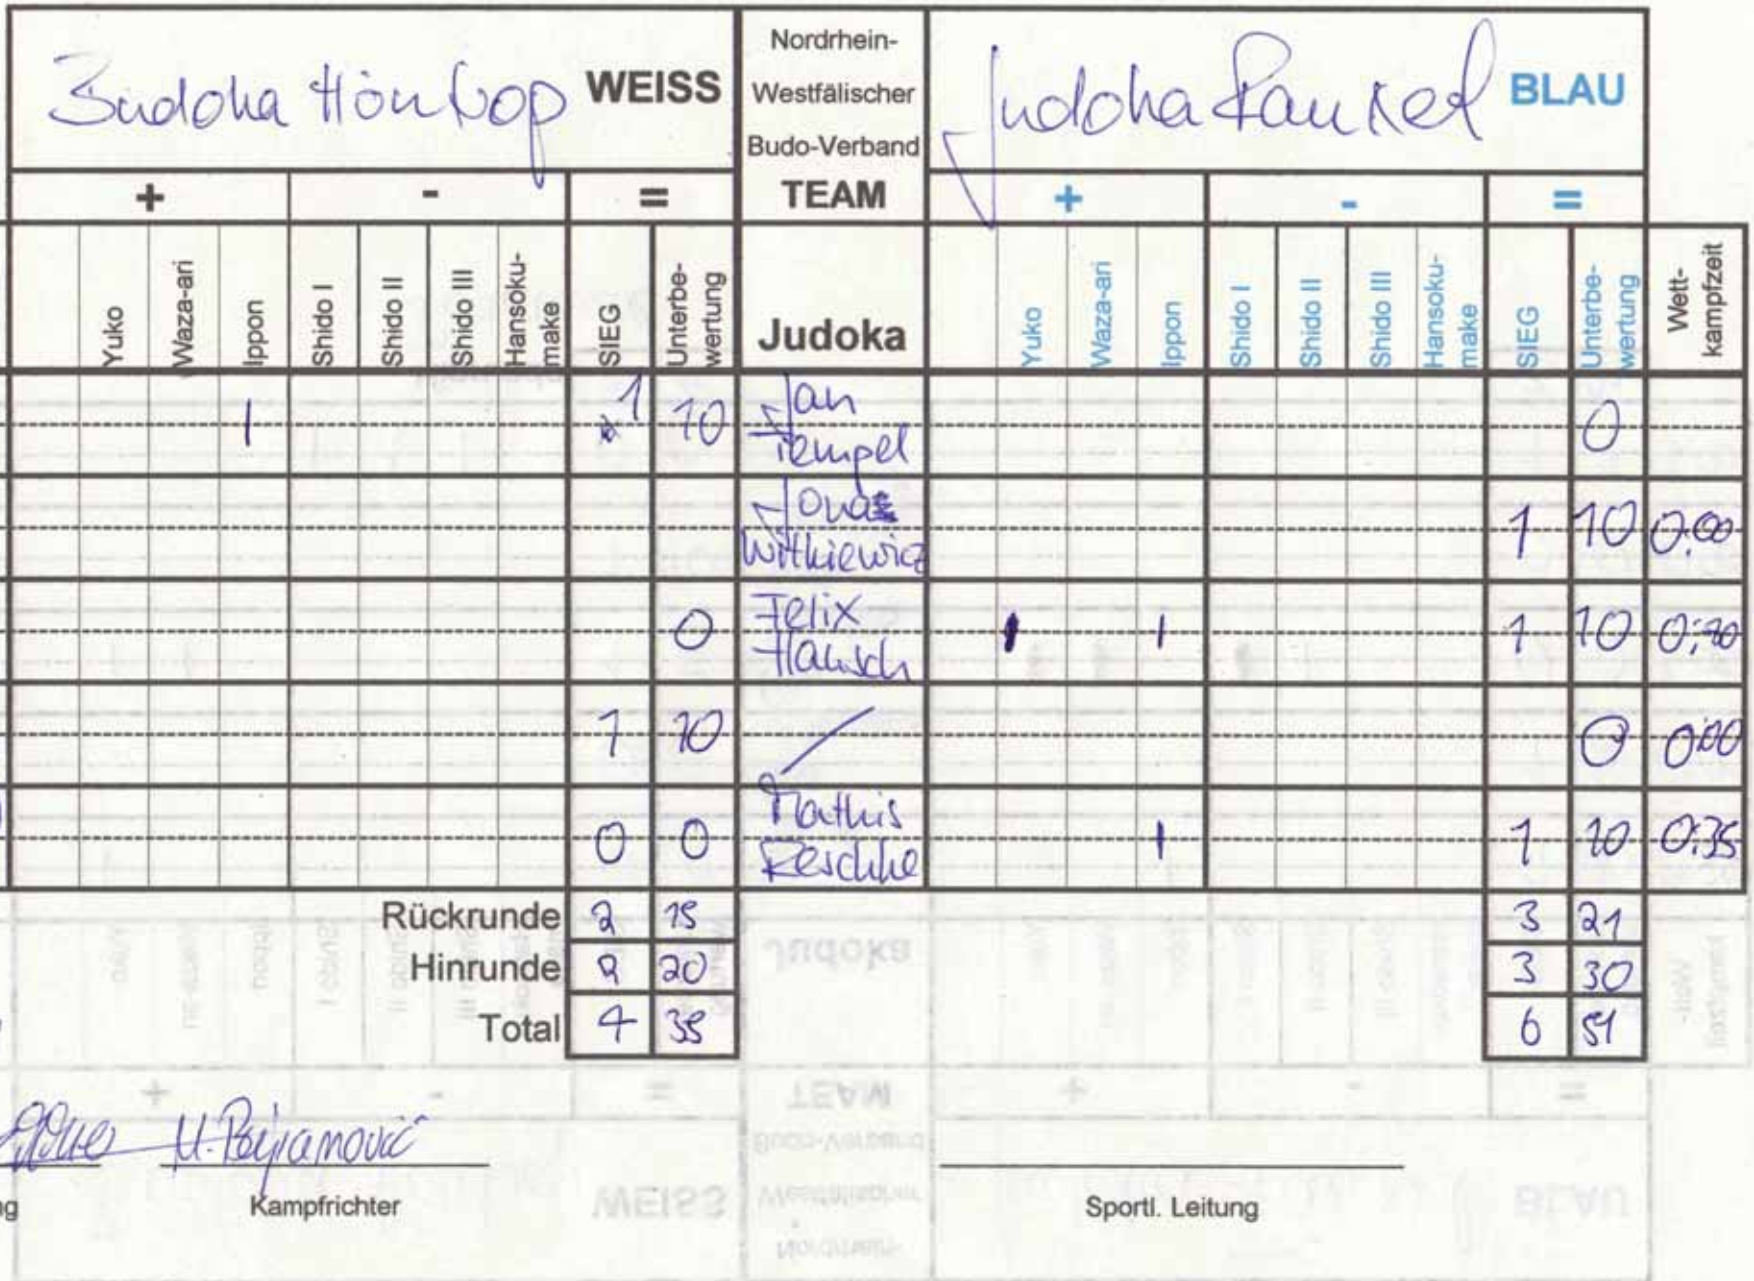 Budoka Höntrop WEISS
Nordrhein-
Westfälischer
Budo-Verband
Judoka Rauxel BLAU
+ - = TEAM + - =
Yuko Waza-ari Ippon Shido I Shido II Shido III Hansoku-make SIEG Unterbe-wertung Judoka Yuko Waza-ari Ippon Shido I Shido II Shido III Hansoku-make SIEG Unterbe-wertung Wett-kampfzeit
1 1 10 Jan 0
Tempel
Jonas
Witkiewicz 1 10 0:00
0 Felix 1 1 1 10
Hausch
1 10 / 0 0:00
0 0 Mathis 1 1 10 0:35
Reschke
Rückrunde 2 15 3 21
Hinrunde 2 20 3 30
Total 4 35 6 51
Kampfrichter Sportl. Leitung